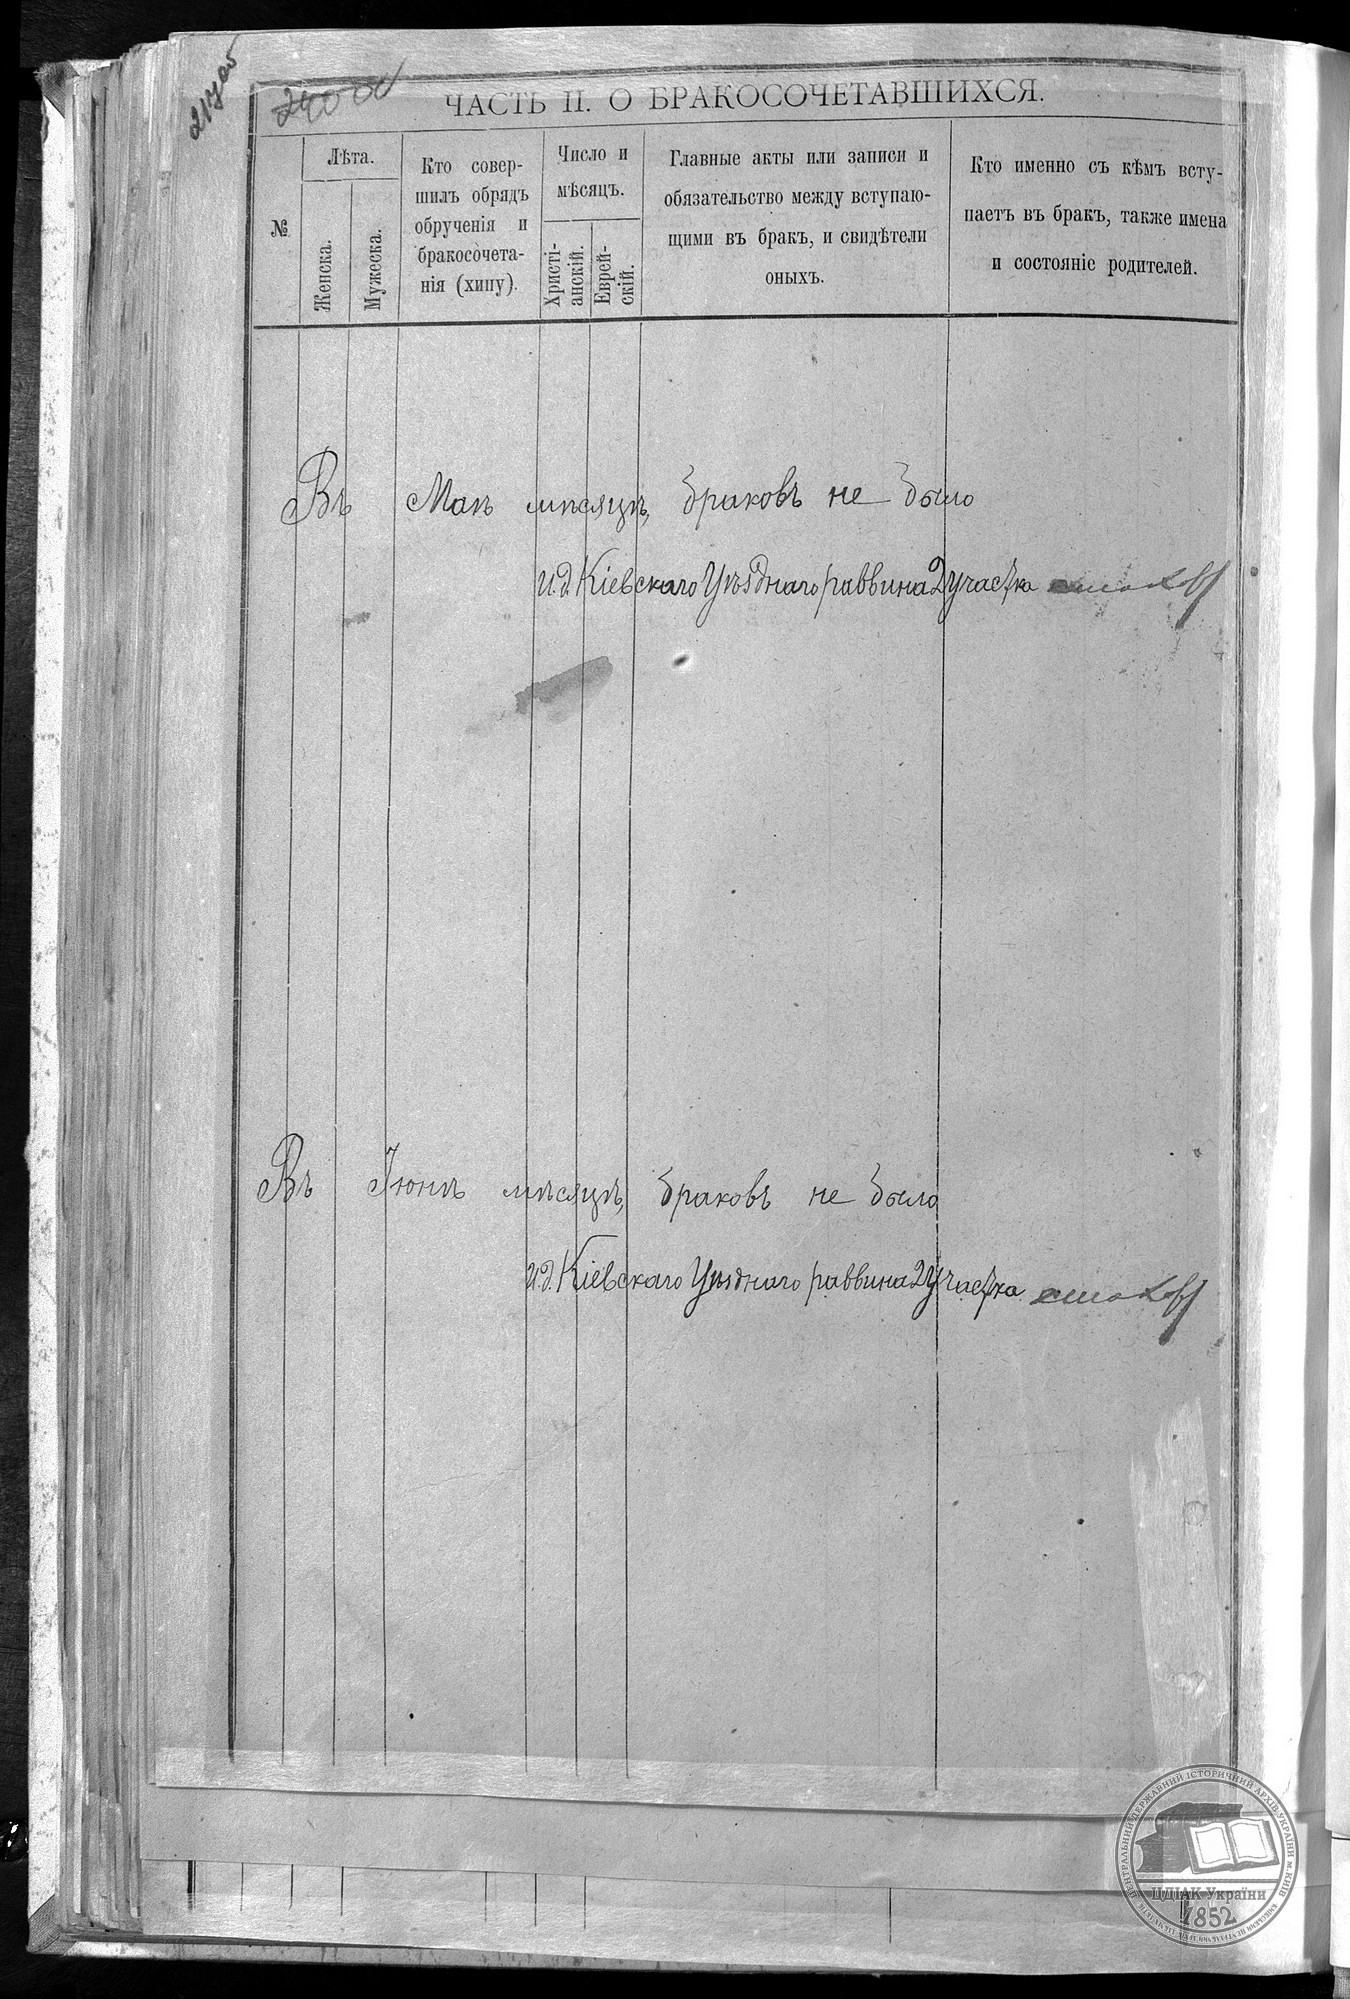 ЧАСТЬ II. О БРАКОСОЧЕТАВШИХСЯ.
№
Лѣта.
Женска.
Мужеска.
Кто совер-
шилъ обрядъ
обрученія и
бракосочета-
нія (хипу).
Число и
мѣсяцъ.
Христі-
анскій.
Еврей-
скій.
Главные акты или записи и
обязательство между вступаю-
щими въ бракъ, и свидѣтели
оныхъ.
Кто именно съ кѣмъ всту-
паетъ въ бракъ, также имена
и состояніе родителей.
Въ Маѣ мѣсяцѣ, браковъ не было
И.д. Кіевскаго Уѣзднаго раввина 2 участка
Въ Іюнѣ мѣсяцѣ, браковъ не было
И.д. Кіевскаго Уѣзднаго раввина 2 участка
ЦЕНТРАЛЬНИЙ ДЕРЖАВНИЙ ІСТОРИЧНИЙ АРХІВ УКРАЇНИ м. КИЇВ
ЦДІАК України
1852